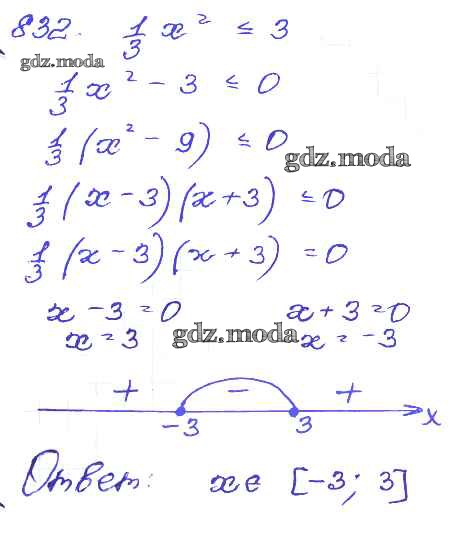 832. 1/3 x² ≤ 3
gdz.moda
1/3 x² - 3 ≤ 0
1/3 (x² - 9) ≤ 0
gdz.moda
1/3 (x - 3)(x + 3) ≤ 0
1/3 (x - 3)(x + 3) = 0
x - 3 = 0 x + 3 = 0
x = 3 gdz.moda x = -3
+ - +
-3 3 x
Ответ: x ∈ [-3; 3]